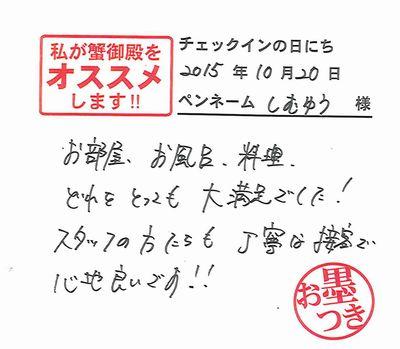 私が蟹御殿を
オススメ
します!!
チェックインの日にち
2015年10月20日
ペンネーム しむゆう 様
お部屋、お風呂、料理、
どれをとっても 大満足でした!
スタッフの方たちも 丁寧な接客で
心地良いです!!
お墨つき